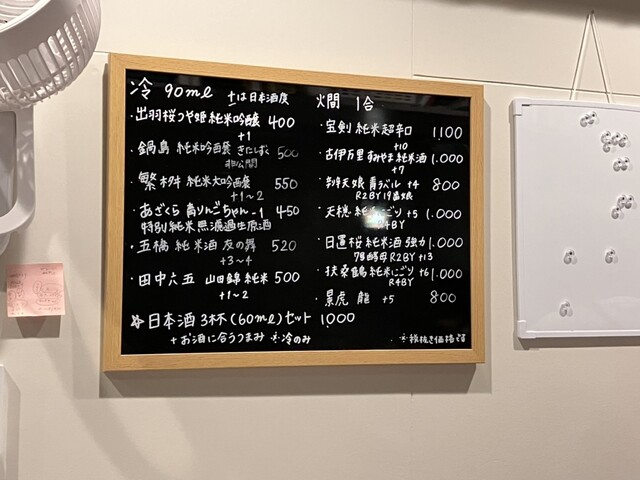 冷 90ml ±は日本酒度
・出羽桜つや姫 純米吟醸 400
+1
・鍋島 純米吟醸 きたしずく 500
非公開
・繁桝 純米大吟醸 550
+1~2
・あざくら 青りんごちゃん -1 450
特別純米 無濾過生原酒
・五橋 純米酒 520
+3~4
・田中六五 山田錦 純米 500
+1~2
日本酒 3杯(60ml)セット 1000
+お酒に合うつまみ ※冷のみ
燗 1合
・宝剣 純米超辛口 1100
+10
・古伊万里 すみやま 純米酒 1.000
+7
・弁天娘 青ラベル +4 800
R2BY 19番娘
・天穏 純米にごり +5 1.000
R4BY
・日置桜 純米酒 強力 1.000
7号酵母 R2BY +13
・扶桑鶴 純米にごり +6 1.000
R4BY
・景虎 龍 +5 800
※税抜き価格